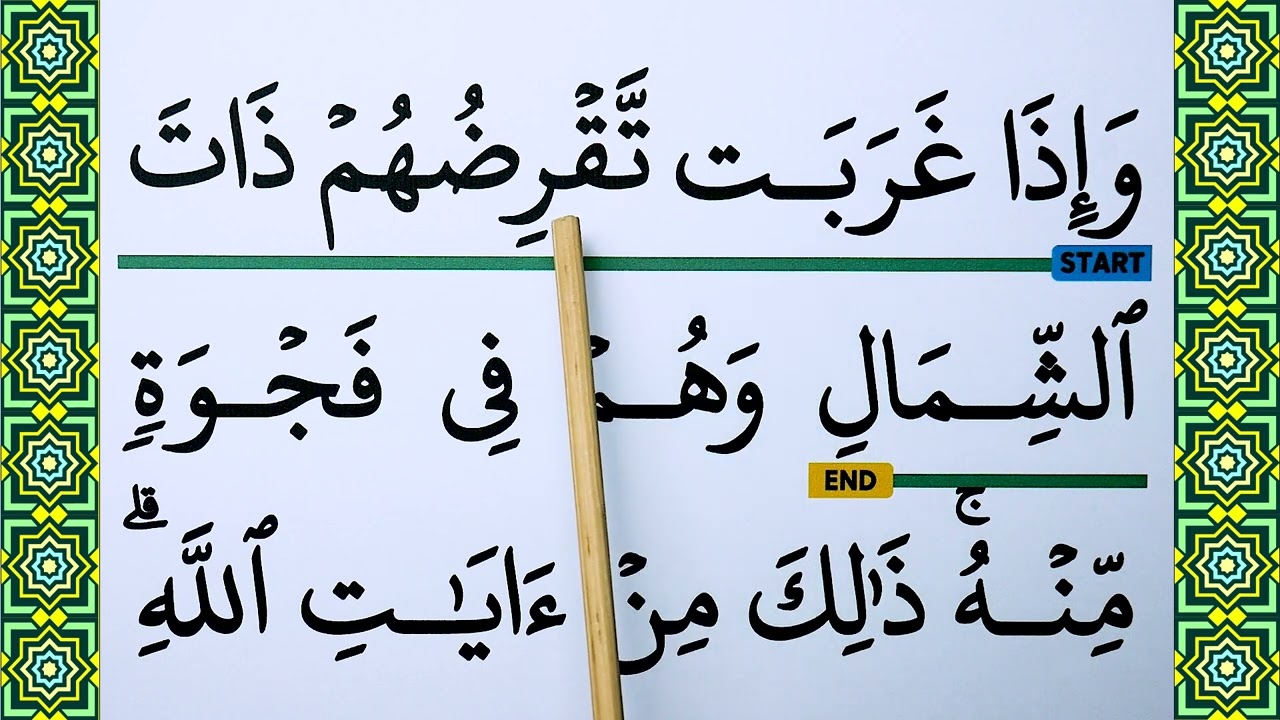 وَإِذَا غَرَبَت تَّقْرِضُهُمْ ذَاتَ
START
ٱلشِّمَالِ وَهُمْ فِى فَجْوَةٍ
END
مِّنْهُ ۚ ذَٰلِكَ مِنْ ءَايَٰتِ ٱللَّهِ ۗ